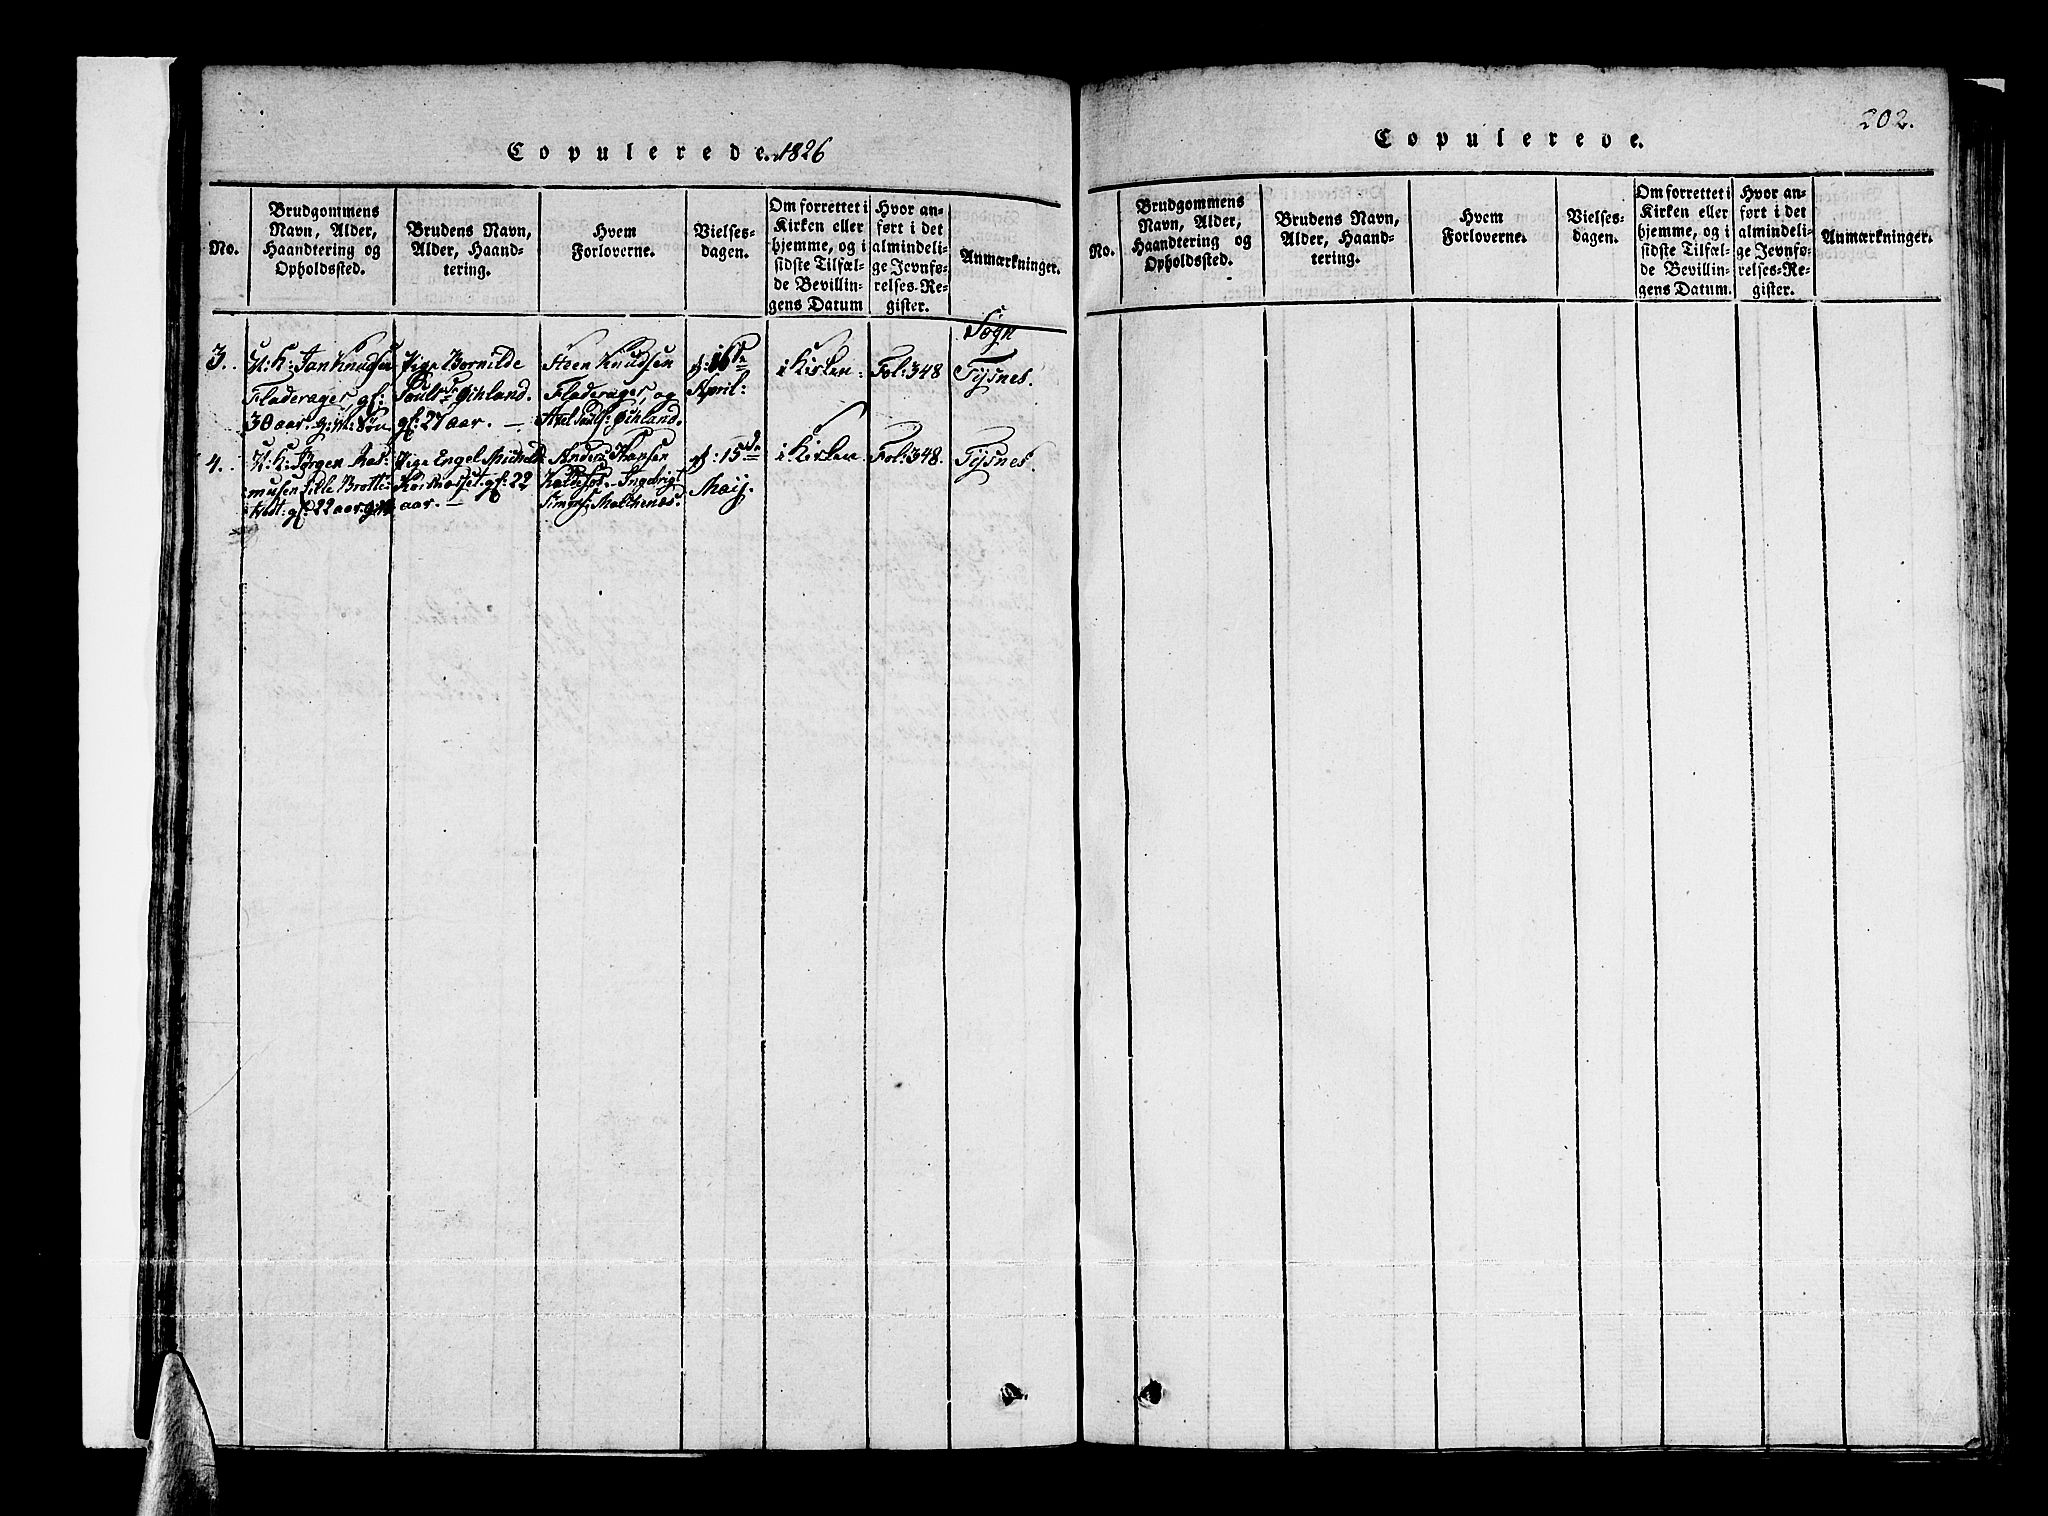 Copulerede. 1826
No.
Brudgommens
Navn, Alder,
Haandtering og
Opholdssted.
Brudens Navn,
Alder, Haand-
tering.
Hvem
Forloverne.
Vielses-
dagen.
Om forrettet i
Kirken eller
hjemme, og i
sidste Tilfæl-
de Bevillin-
gens Datum
Hvor an-
ført i det
almindeli-
ge Jevnfø-
relses-Re-
gister.
Anmærkninger.
Sogn
3.
U: K: Jan Knudsen
Fladerager, gf:
30 aar. g: M: Søn
Pige Bornilde
Pouls Dr Øihland.
gf: 27 aar. —
Steen Knudsen
Fladerager, og
Axel Pouls: Øihland.
d: 16de
April:
i Kirken.
Fol: 348
Tysnes.
4.
U: K: Jørgen Ras-
musen Lille Brotte-
vedt: gf: 22 aar.
Pige Engel
gf: 22
aar. —
Anders Hansen
Ingebrigt
d: 15de
Maij.
i Kirken
Fol: 348.
Tysnes.
Copulerede.
202.
No.
Brudgommens
Navn, Alder,
Haandtering og
Opholdssted.
Brudens Navn,
Alder, Haand-
tering.
Hvem
Forloverne.
Vielses-
dagen.
Om forrettet i
Kirken eller
hjemme, og i
sidste Tilfæl-
de Bevillin-
gens Datum.
Hvor an-
ført i det
almindeli-
ge Jevnfø-
relses-Re-
gister.
Anmærkninger.